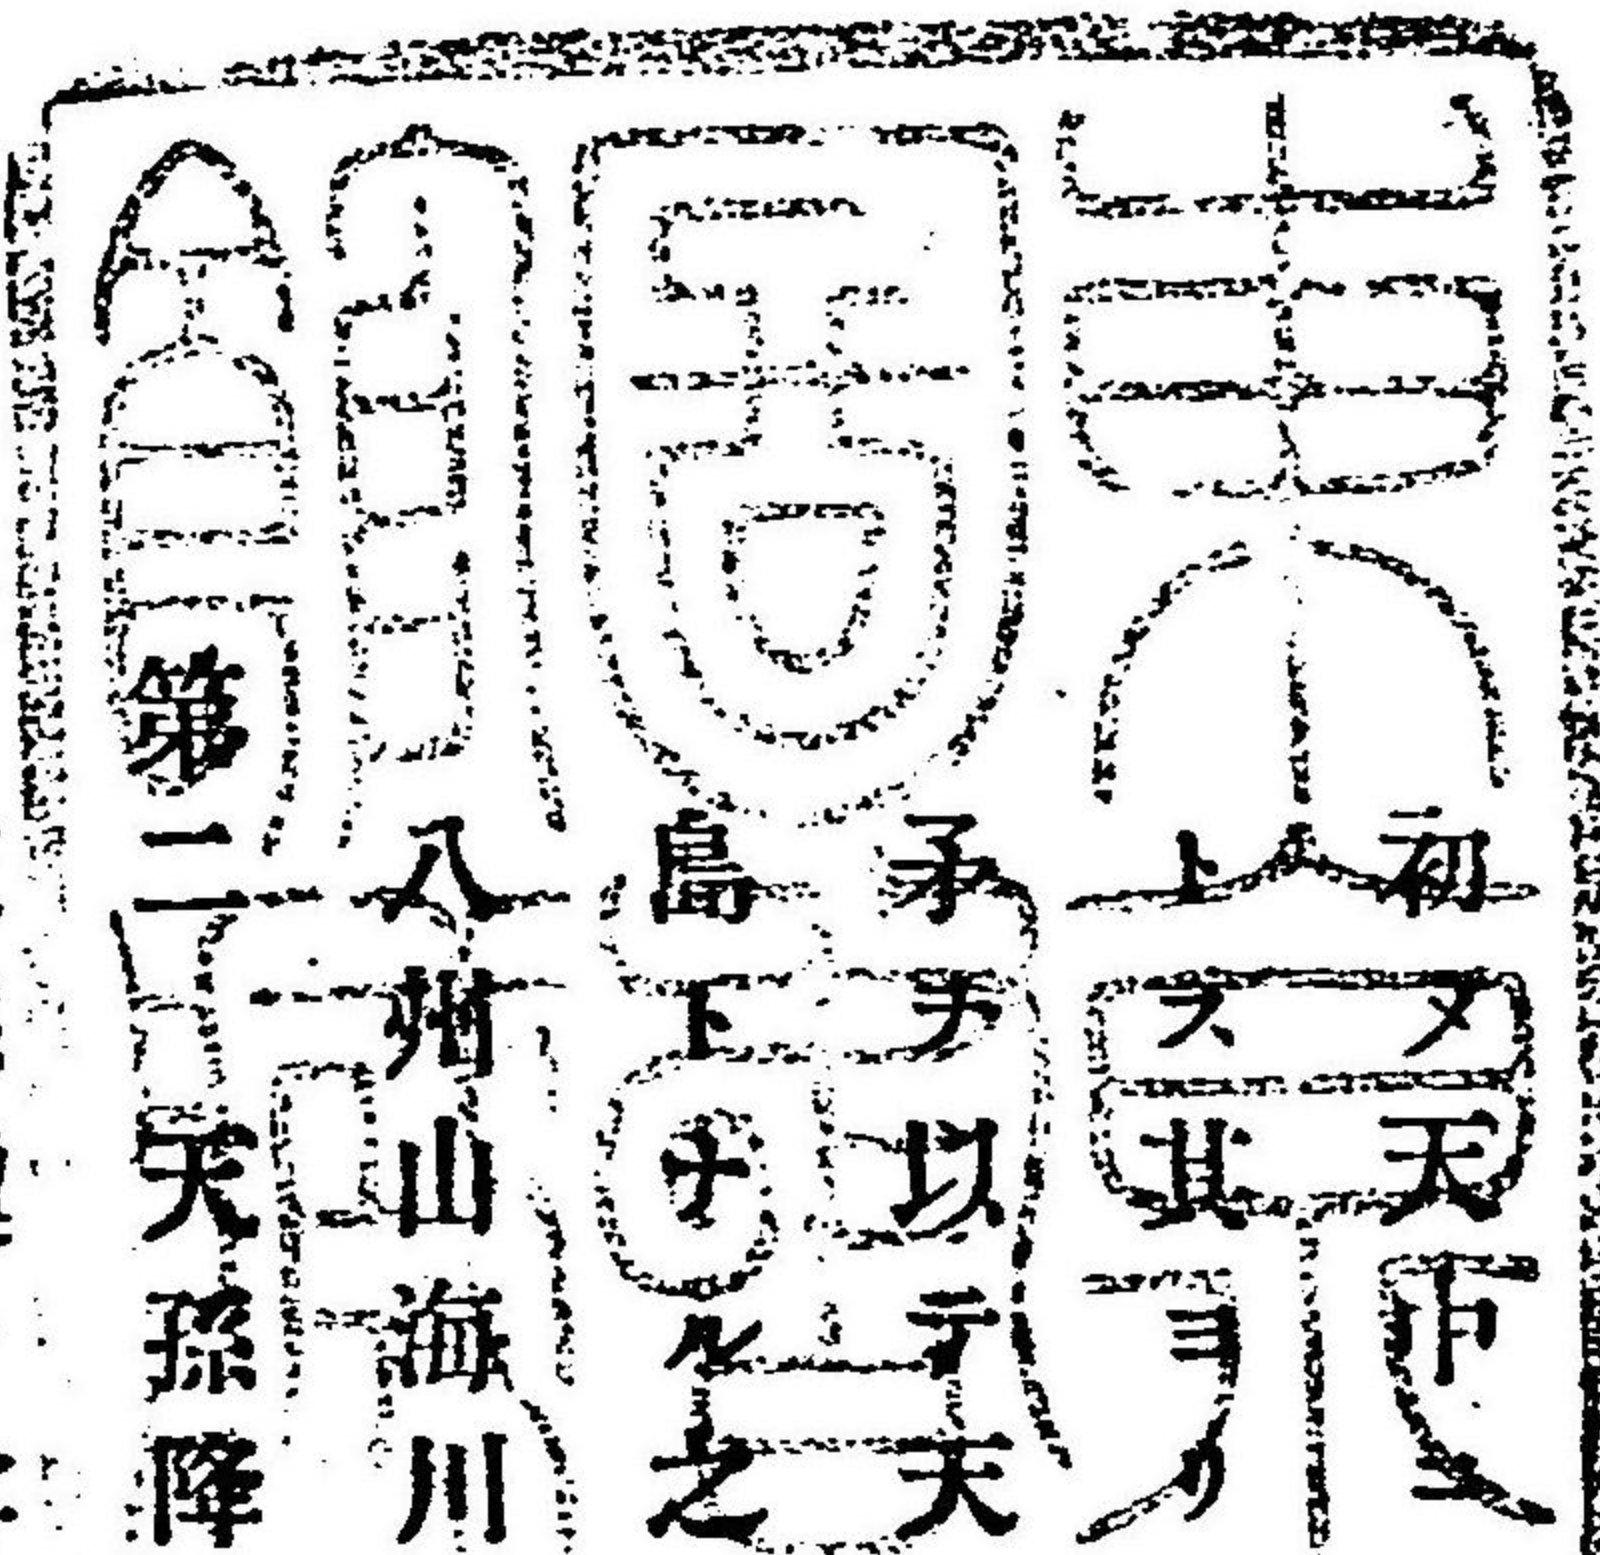 初メ天中ニ
トス其ヨリ
矛ヲ以テ天
島トナル之
八州山海川
第二天孫降